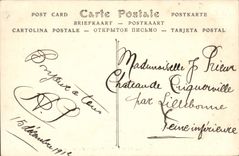 POST CARD Carte Postale POSTKARTE
BRIEFKAART POSTKAART
CARTOLINA POSTALE ОТКРЫТОЕ ПИСЬМО TARJETA POSTAL
Mademoiselle J Prieur
Château de
par Lillebonne
Seine inférieure
Bonjour à tous